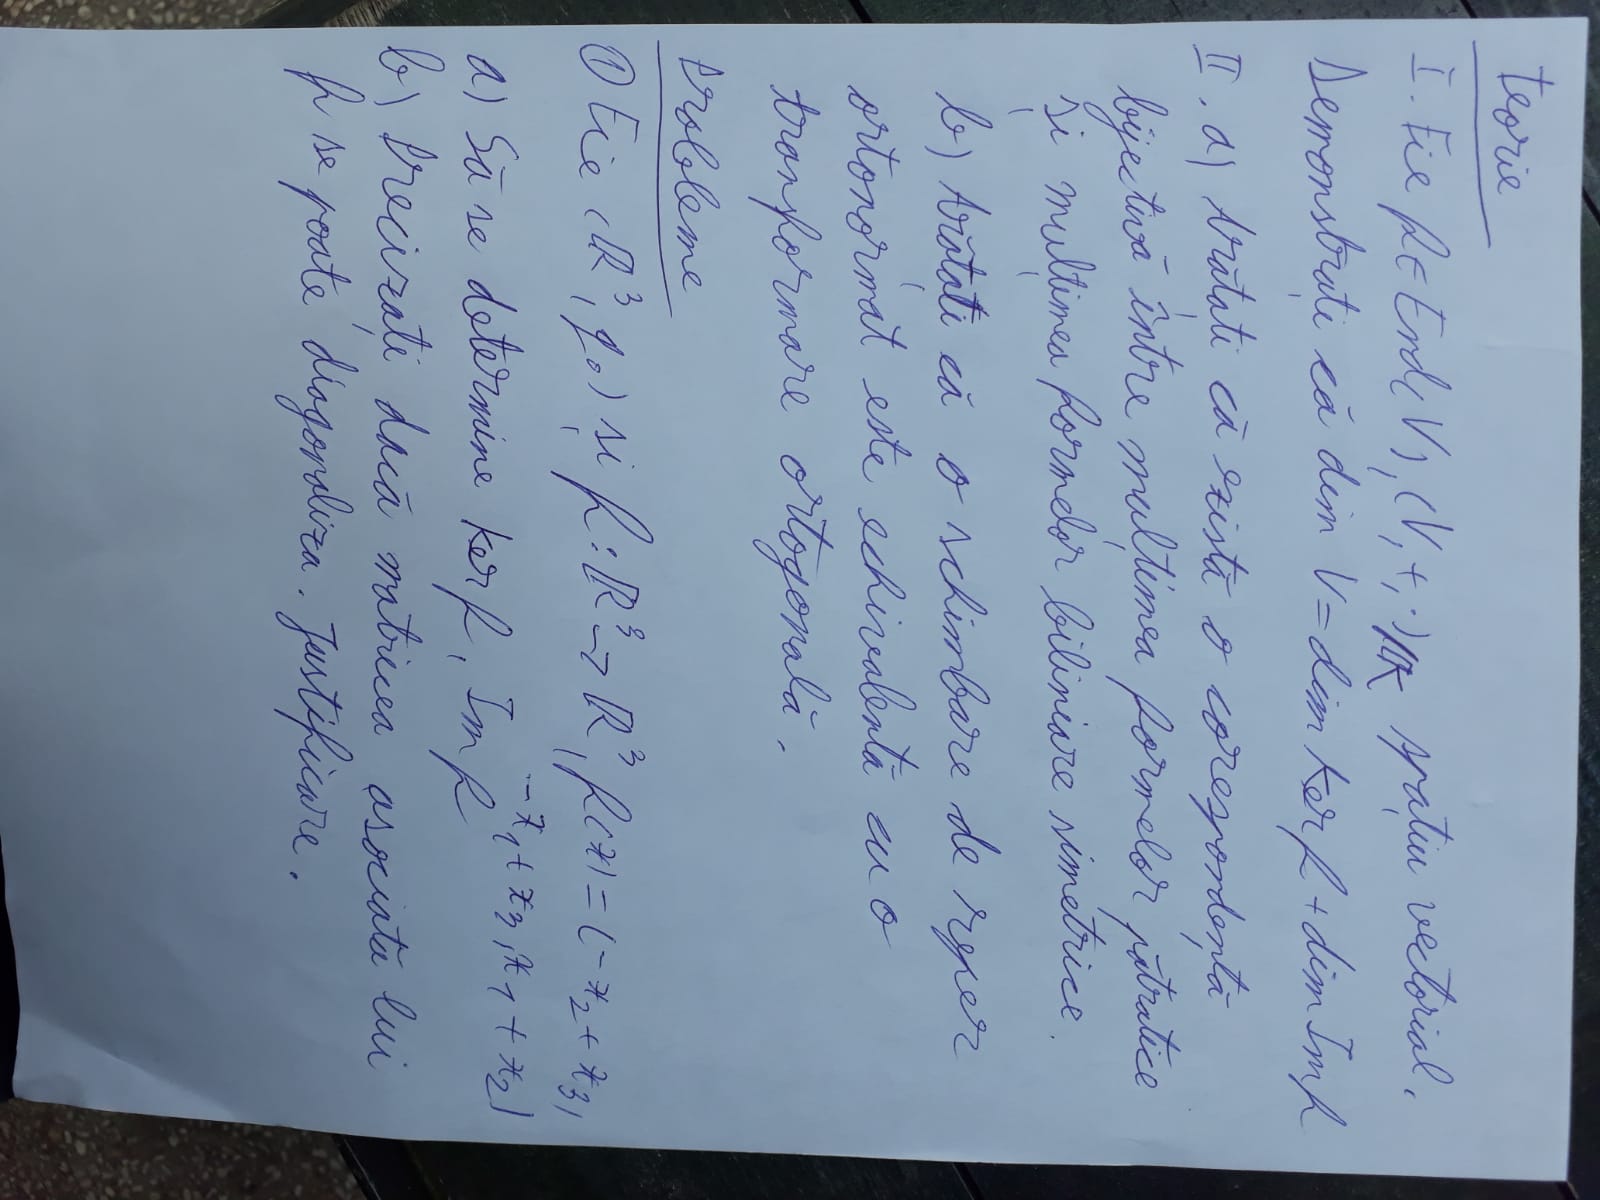 Teorie
I. Fie f ∈ End(V), (V, +, ·)/K spațiu vectorial.
Demonstrați că dim V = dim Ker f + dim Im f
II. a) Arătati că există o corespondență
bijectivă între mulțimea formelor pătratice
și mulțimea formelor biliniare simetrice.
b) Arătați că o schimbare de reper
ortonormat este echivalentă cu o
tranformare ortogonală.
Probleme
① Fie (R³, g₀) și f: R³ → R³, f(x) = (-x₂ + x₃,
-x₁ + x₃, x₁ + x₂)
a) Să se determine Ker f, Im f
b) Precizați dacă matricea asociată lui
f se poate diagonaliza. Justificare.